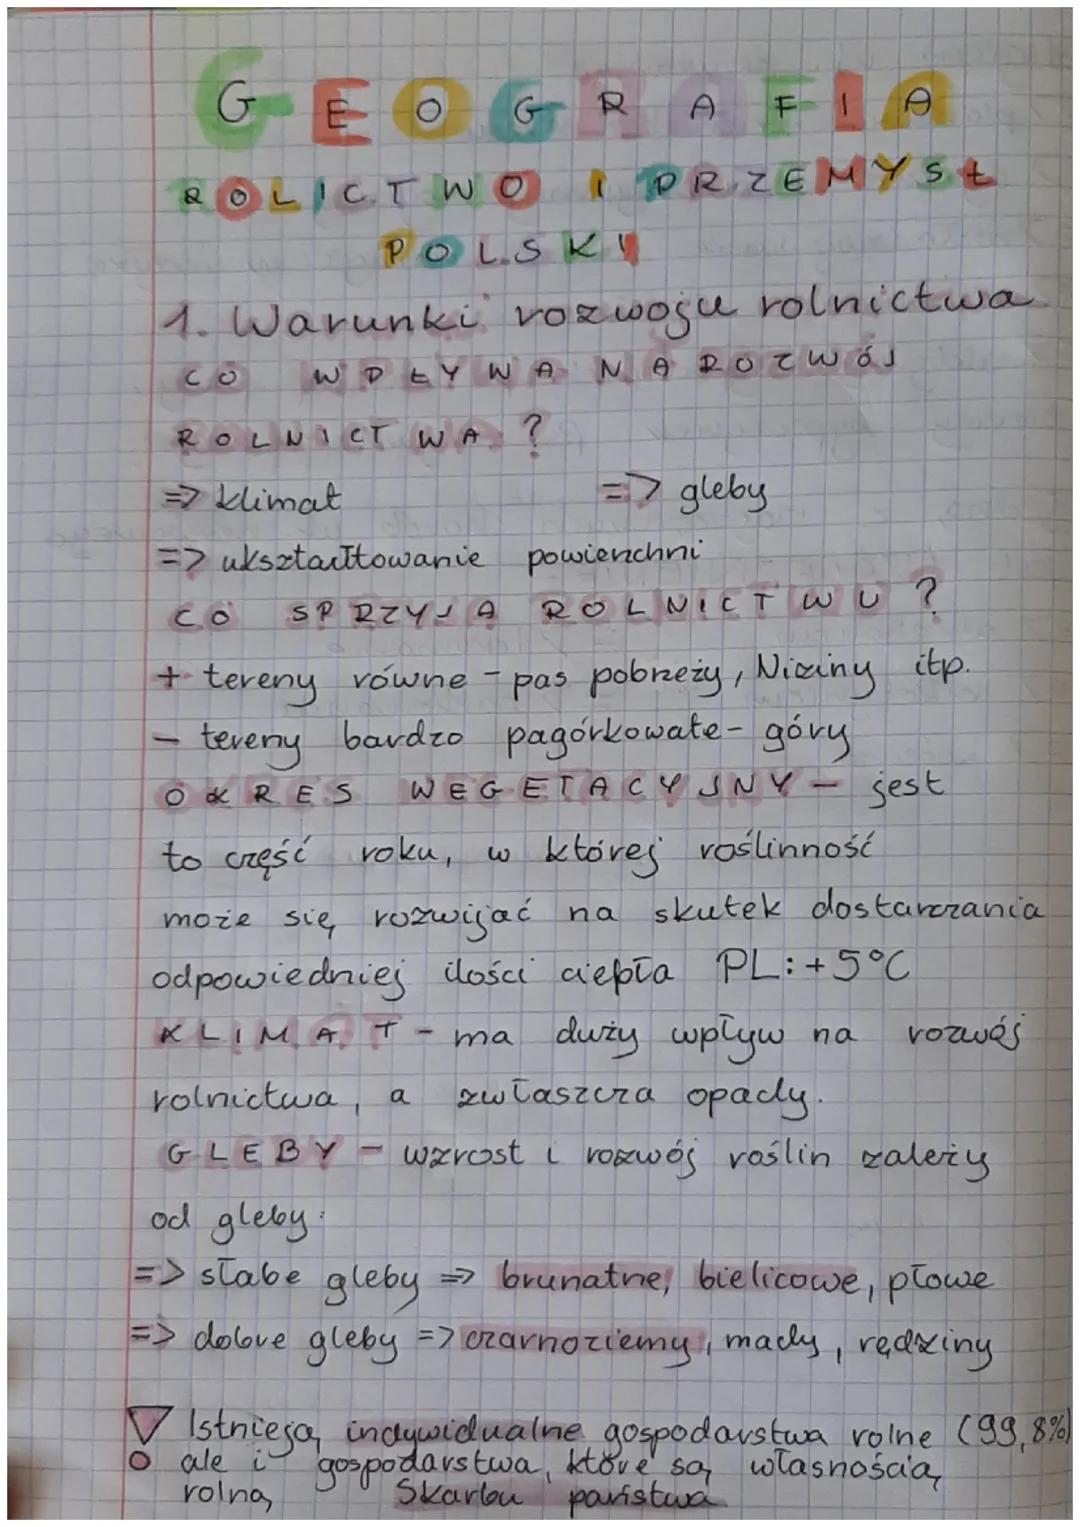 GEOGRAFIA
ROLICTWO I PRZEMYSŁ
POLSKI
1. Warunki rozwoju rolnictwa
CO WPŁYWA NA ROZWÓJ
ROLNICTWA ?
=> klimat => gleby
=> ukształtowanie powierzchni
CO SPRZYJA ROLNICTWU ?
+ tereny równe - pas pobrzeży, Niziny itp.
- tereny bardzo pagórkowate - góry
OKRES WEGETACYJNY - jest
to część roku, w której roślinność
może się rozwijać na skutek dostarczania
odpowiedniej ilości ciepła PL: +5°C
KLIMAT - ma duży wpływ na rozwój
rolnictwa, a zwłaszcza opady.
GLEBY - wzrost i rozwój roślin zależy
od gleby:
=> słabe gleby => brunatne, bielicowe, płowe
=> dobre gleby => czarnoziemy, mady, rędziny
Istnieją indywidualne gospodarstwa rolne (99,8%)
ale i gospodarstwa, które są własnością
rolną Skarbu państwa